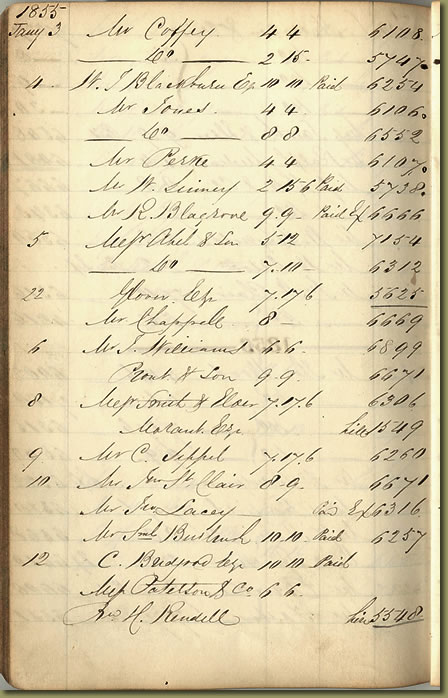 1855
Jany 3 Mr Coffey 4 4 6108
Do 2 15 5747
4 W. J Blackburn Eq 10 10 Paid 6254
Mr Jones 4 4 6106
Do 8 8 6552
Mr Perne 4 4 6107
Mr W. 2 15 6 Paid 5738
Mr R. Blagrove 9. 9 - Paid Ex 6666
5 Messrs Abel & Son 5 12 7154
Do 7. 10 - 6312
22 Glover Eqr 7. 17 6 5625
Mr Chappell 8 - 6669
6 Mr J. Williams 6 6 6899
Prout & Son 9. 9. 6471
8 Messrs & 7. 17. 6 6306
Morant Eqr hire 1549
9 Mr C. Sippel 7. 17. 6 6260
10 Mr Jno St. Clair 8 - 9. 6671
Mr Jno Lacey Ex 6316
Mr Saml 10 10 Paid 6257
12 C. Bedford Eqr 10 10 Paid
Messrs Paterson & Co 6 6.
H. Rendell hire 5548